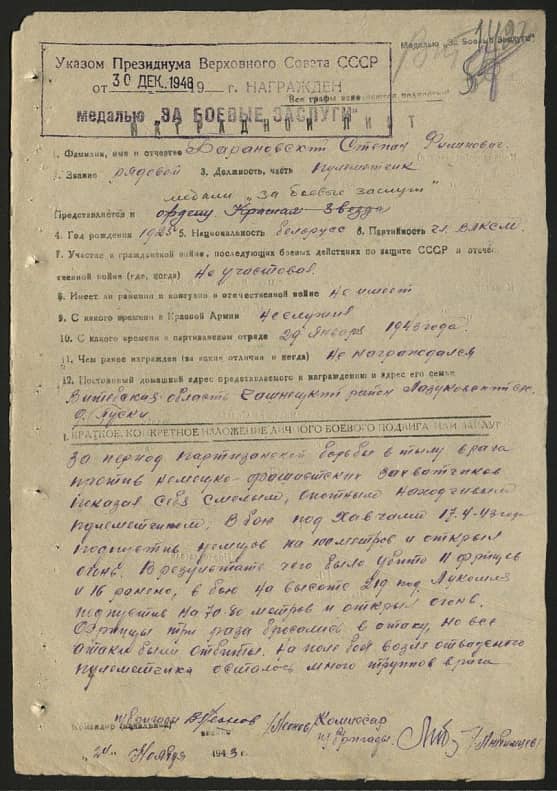 Медалью „За Боевые Заслуги"
Указом Президиума Верховного Совета СССР
от 30 ДЕК. 1948 г. НАГРАЖДЕН
Все графы
медалью „ЗА БОЕВЫЕ ЗАСЛУГИ"
НАГРАДНОЙ ЛИСТ
1. Фамилия, имя и отчество Барановский Степан
2. Звание рядовой 3. Должность, часть пулеметчик
медали „за боевые заслуги"
Представляется к ордену Красная Звезда
4. Год рождения 1925 5. Национальность белорусс 6. Партийность чл. ВЛКСМ
7. Участие в гражданской войне, последующих боевых действиях по защите СССР и отече-
ственной войне (где, когда) не участвовал
8. Имеет ли ранения и контузии в отечественной войне не имеет
9. С какого времени в Красной Армии не служил
10. С какого времени в партизанском отряде 29 января 1943 года.
11. Чем ранее награжден (за какие отличия и когда) не награждался
12. Постоянный домашний адрес представляемого к награждению и адрес его семьи
Витебская область Чашницкий район
I. КРАТКОЕ, КОНКРЕТНОЕ ИЗЛОЖЕНИЕ ЛИЧНОГО БОЕВОГО ПОДВИГА ИЛИ ЗАСЛУГ
За период партизанской борьбы в тылу врага
против немецко-фашистских захватчиков
показал себя смелым, опытным находчивым
пулеметчиком. В бою под 17.4.43 года
подпустив немцев на метров и открыл
огонь. В результате чего было убито 11 фрицев
и 16 ранено, в бою на высоте 219 под Лукомля
подпустив на 70-80 метров и открыл огонь.
Фрицы три раза бросались в атаку, но все
атаки были отбиты. На поле боя возле отважного
пулеметчика осталось много трупов врага
Командир бригады Леонов /Леонов/ Комиссар
п/бригады
"24" Ноября 1943 г.